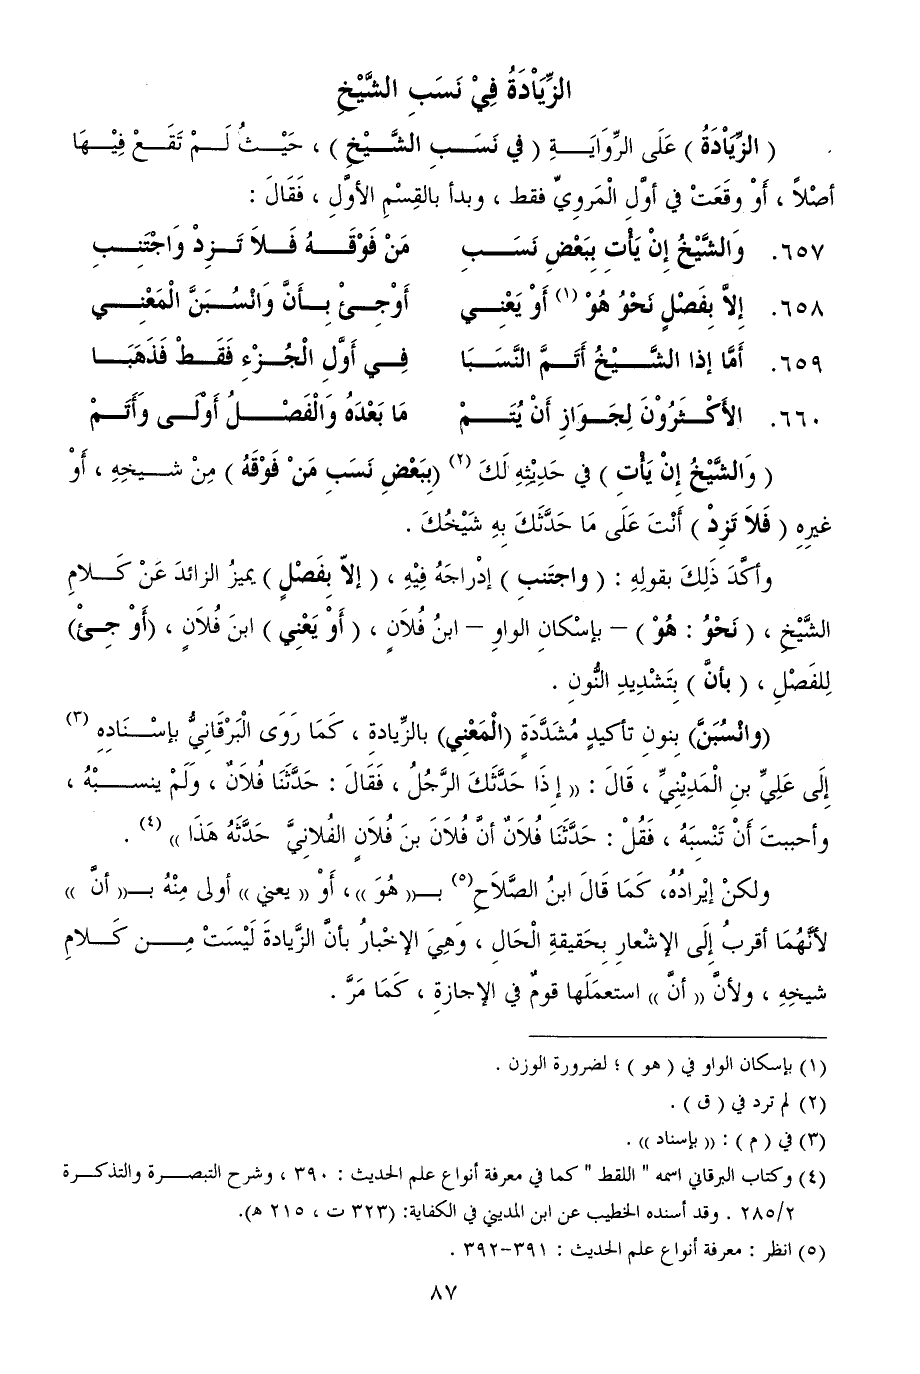 الزِّيَادَةُ فِيْ نَسَبِ الشَّيْخِ
( الزِّيَادَةُ ) عَلَى الرِّوَايَةِ ( في نَسَبِ الشَّيْخِ ) ، حَيْثُ لَمْ تَقَعْ فِيْهَا
أصْلاً ، أَوْ وقَعَتْ في أوَّلِ الْمَرويِّ فقط ، وبدأ بالقِسْمِ الأوَّلِ ، فَقَالَ :
٦٥٧. وَالشَّيْخُ إنْ يَأْتِ بِبَعْضِ نَسَبِ مَنْ فَوْقَهُ فَلاَ تَزِدْ وَاجْتَنِبِ
٦٥٨. إلاَّ بِفَصْلٍ نَحْوُ هُوْ (١) أَوْ يَعْنِي أَوْجِئْ بِأَنَّ وَانْسُبَنَّ الْمَعْنِي
٦٥٩. أَمَّا إذا الشَّيْخُ أَتَمَّ النَّسَبَا فِي أَوَّلِ الْجُزْءِ فَقَطْ فَذَهَبَا
٦٦٠. الأَكْثَرُوْنَ لِجَوَازِ أَنْ يُتَمْ مَا بَعْدَهُ وَالْفَصْلُ أَوْلَى وَأَتَمْ
( وَالشَّيْخُ إنْ يَأْتِ ) في حَدِيْثِهِ لَكَ (٢) (بِبَعْضِ نَسَبِ مَنْ فَوْقَهُ ) مِنْ شيخِهِ ، أَوْ
غيرِهِ ( فَلاَ تَزِدْ ) أَنْتَ عَلَى مَا حَدَّثَكَ بِهِ شَيْخُكَ .
وأكَّدَ ذَلِكَ بقولِهِ : ( واجتَنبِ ) إدْراجَهُ فِيْهِ ، ( إلاّ بِفَصْلٍ ) يميزُ الزائدَ عَنْ كَلامِ
الشَّيْخِ ، ( نَحْوُ : هُوْ ) – بإسْكانِ الواوِ – ابنُ فُلاَنٍ ، ( أَوْ يَعْنِي ) ابنَ فُلاَنٍ ، (أَوْ جِئْ)
لِلفَصْلِ ، ( بأنَّ ) بتَشْدِيدِ النُّونِ .
(وانْسُبَنَّ) بنونِ تأكيدٍ مُشَدَّدَةٍ (الْمَعْنِي) بالزِّيادةِ ، كَمَا رَوَى الْبَرْقَانِيُّ بإسْنادِهِ (٣)
إِلَى عَلِيِّ بنِ الْمَدِيْنِيِّ ، قَالَ : « إذَا حَدَّثَكَ الرَّجُلُ ، فَقَالَ : حَدَّثَنَا فُلاَنٌ ، وَلَمْ ينسبْهُ ،
وأحببتَ أَنْ تَنْسِبَهُ ، فَقُلْ : حَدَّثَنَا فُلاَنٌ أنَّ فُلاَنَ بنَ فُلاَنٍ الفُلاَنِيَّ حَدَّثَهُ هَذَا » (٤) .
ولكنْ إيرادُهُ، كَمَا قَالَ ابنُ الصَّلاَحِ (٥) بـ« هُوَ »، أَوْ « يعني » أولى مِنْهُ بـ« أنَّ »
لأنَّهُمَا أقربُ إِلَى الإشْعارِ بحَقِيقةِ الْحَالِ ، وَهِيَ الإخْبارُ بأنَّ الزَّيادةَ لَيْسَتْ مِنْ كَلامِ
شيخِهِ ، ولأنَّ « أنَّ » استعمَلَها قومٌ في الإجازةِ ، كَمَا مَرَّ .
(١) بإسكان الواو في ( هو ) ؛ لضرورة الوزن .
(٢) لم ترد في ( ق ) .
(٣) في ( م ) : « بإسناد » .
(٤) وكتاب البرقاني اسمه " اللقط " كما في معرفة أنواع علم الحديث : ٣٩٠ ، وشرح التبصرة والتذكرة
٢/٢٨٥ . وقد أسنده الخطيب عن ابن المديني في الكفاية: (٣٢٣ ت ، ٢١٥ هـ).
(٥) انظر : معرفة أنواع علم الحديث : ٣٩١–٣٩٢ .
٨٧